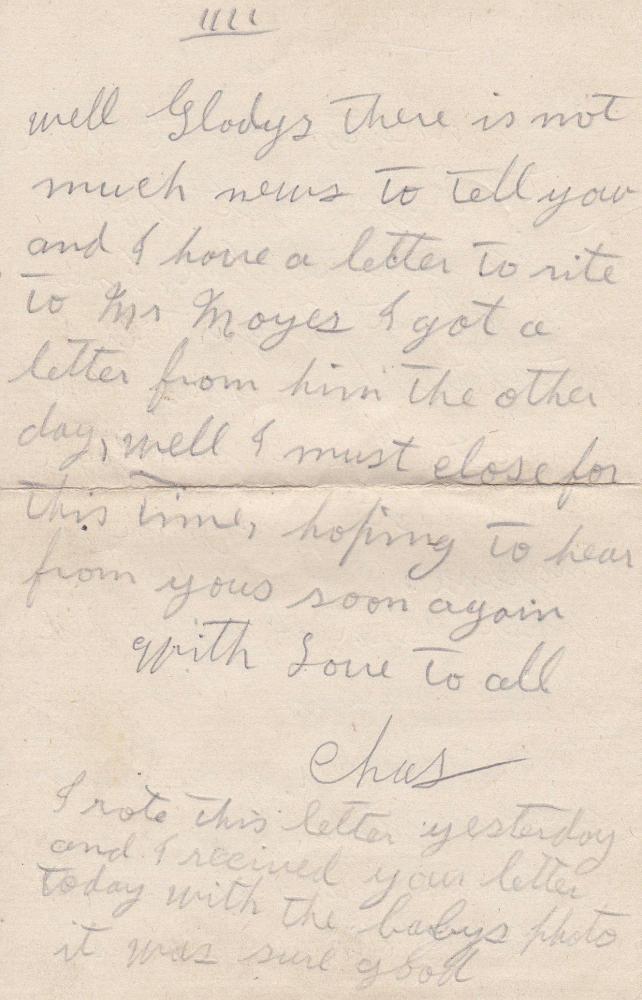 1111
well Gladys there is not
much news to tell you
and I have a letter to rite
to Mr Moyes I got a
letter from him the other
day, well I must close for
this time, hoping to hear
from yous soon again
With Love to all
Chas
I rote this letter yesterday
and I received your letter
today with the babys photo
it was sure good